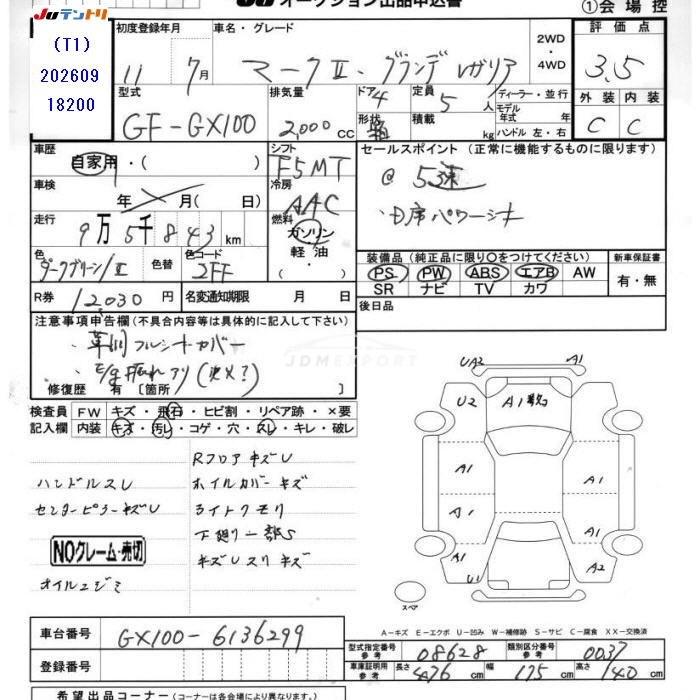 JUテントリ
オークション出品申込書
①会場控
(T1)
202609
18200
初度登録年月
11 7月
車名・グレード
マークⅡ・グランデ レガリア
2WD
・
4WD
評価点
3.5
型式
GF-GX100
排気量
2,000cc
ドア 4
形状
定員 5人
積載 kg
ディーラー・並行
モデル年式 年
ハンドル 左・右
外装 内装
C C
車歴
自家用・( )
シフト
F5MT
セールスポイント(正常に機能するものに限ります)
@ 5速
・D席パワーシート
車検
年 月( 日)
冷房
AAC
走行
9万5千843km
燃料
ガソリン
軽油
・( )
色
ダークグリーン/Ⅱ
色替
色コード
2FF
装備品(純正品に限り○をつけてください)
PS PW ABS エアB AW
SR ナビ TV カワ
新車保証書
有・無
R券 12,030円
名変通知期限 月 日
後日品
注意事項申告欄(不具合内容等は具体的に記入して下さい)
・革調フルシートカバー
修復歴 有 [箇所 ]
検査員
記入欄
FW キズ・飛石・ヒビ割・リペア跡・×要
内装 キズ・汚レ・コゲ・穴・スレ・キレ・破レ
RフロアキズU
ハンドルスレ
ホイルカバーキズ
センターピラーキズU
ライトクモリ
下廻り一部S
NOクレーム・売切
キズUスリキズ
オイルニジミ
UA2 A1
U2 A1
A1 A1
A1 A1
A1 A2
U1
スペア
A-キズ E-エクボ U-凹み W-補修跡 S-サビ C-腐食 XX-交換済
車台番号 GX100-6136299
登録番号
型式指定番号 参考 08628
類別区分番号 参考 0037
車庫証明用 参考 長さ 476cm 幅 175cm 高さ 140cm
希望出品コーナー(コーナーは各会場により異なります。)
JDMEXPORT